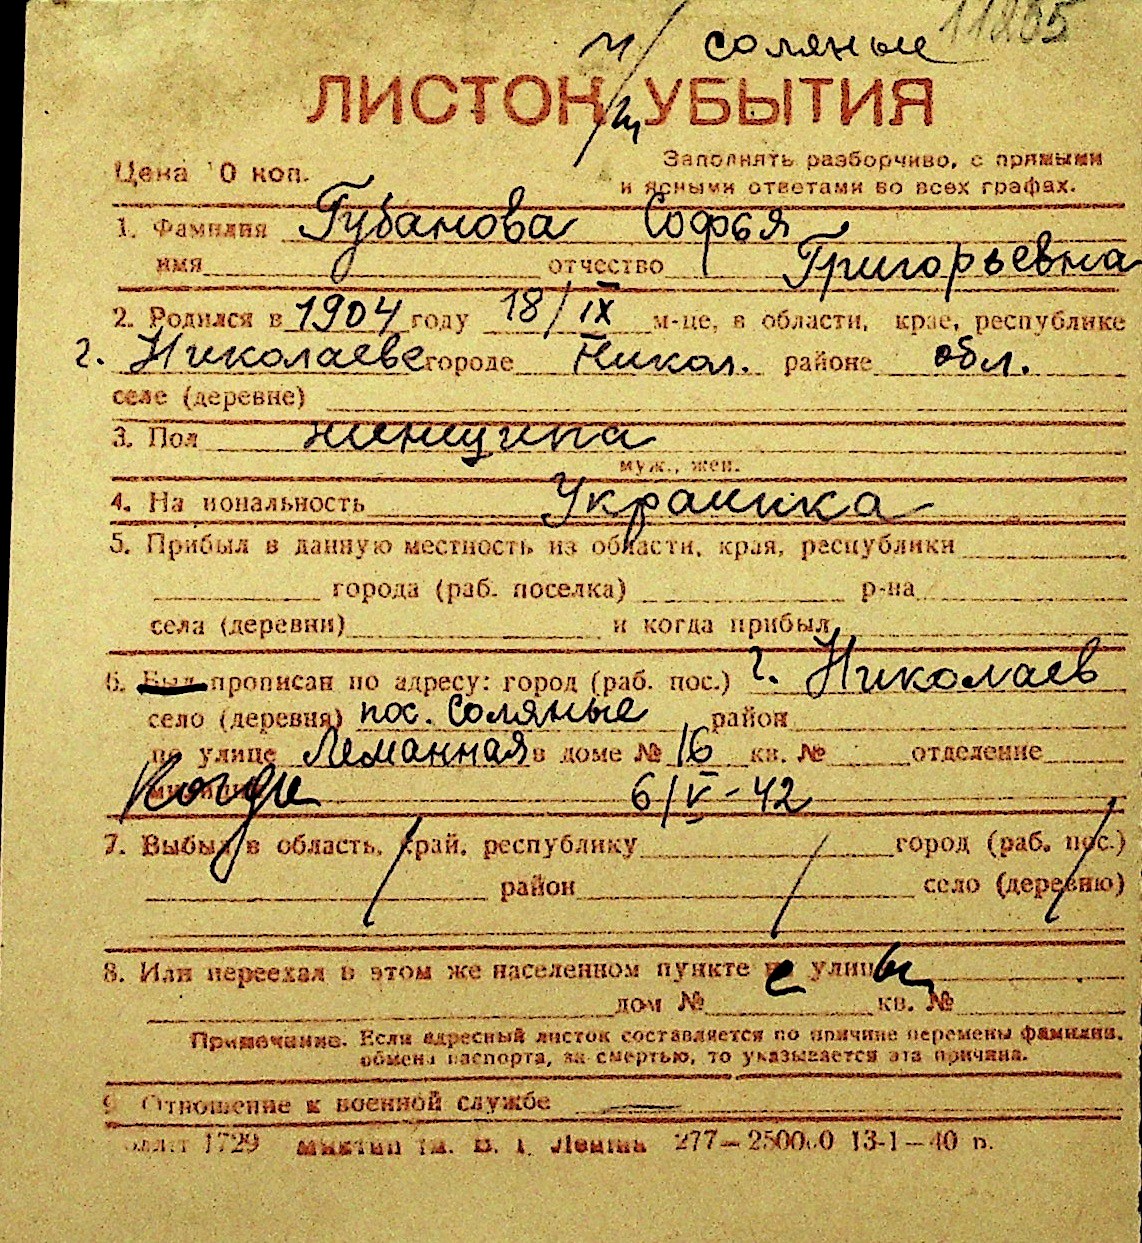 11205
н/ соляные
ЛИСТОК УБЫТИЯ
Цена 10 коп.
Заполнять разборчиво, с прямыми
и ясными ответами во всех графах.
1. Фамилия Губанова Софья
имя отчество Григорьевна
2. Родился в 1904 году 18/IX м-це, в области, крае, республике
г. Николаеве городе Никол. районе обл.
селе (деревне)
3. Пол женщина
муж., жен.
4. Национальность Украинка
5. Прибыл в данную местность из области, края, республики
города (раб. поселка) р-на
села (деревни) и когда прибыл
6. Был прописан по адресу: город (раб. пос.) г. Николаев
село (деревня) пос. Соляные район
по улице Лиманная в доме № 16 кв. № отделение
милиции Когда 6/V-42
7. Выбыл в область, край, республику город (раб. пос.)
район село (деревню)
8. Или переехал в этом же населенном пункте с улицы
дом № кв. №
Примечание. Если адресный листок составляется по причине перемены фамилии,
обмена паспорта, за смертью, то указывается эта причина.
9. Отношение к военной службе —
1729 им. В. І. Леніна 277—250000 13-1—40 п.